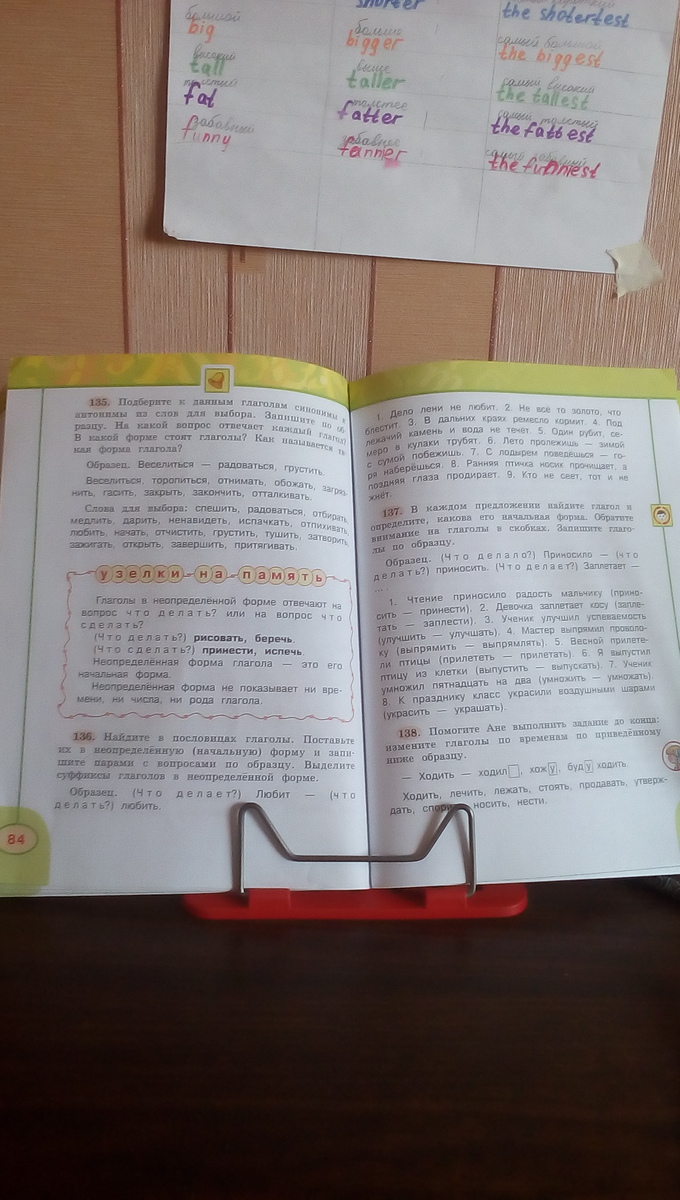 shorter
the shotertest
большой
больше
самый большой
big
bigger
the biggest
высокий
выше
самый высокий
tall
taller
the tallest
толстый
толстее
самый толстый
fat
fatter
the fattest
забавный
забавнее
самый забавный
funny
fannier
the funniest
135. Подберите к данным глаголам синонимы и
антонимы из слов для выбора. Запишите по об-
разцу. На какой вопрос отвечает каждый глагол?
В какой форме стоят глаголы? Как называется та-
кая форма глагола?
Образец. Веселиться — радоваться, грустить.
Веселиться, торопиться, отнимать, обожать, загряз-
нить, гасить, закрыть, закончить, отталкивать.
Слова для выбора: спешить, радоваться, отбирать,
медлить, дарить, ненавидеть, испачкать, отпихивать,
любить, начать, отчистить, грустить, тушить, затворить,
зажигать, открыть, завершить, притягивать.
узелки на память
Глаголы в неопределённой форме отвечают на
вопрос что делать? или на вопрос что
сделать?
(Что делать?) рисовать, беречь.
(Что сделать?) принести, испечь.
Неопределённая форма глагола — это его
начальная форма.
Неопределённая форма не показывает ни вре-
мени, ни числа, ни рода глагола.
136. Найдите в пословицах глаголы. Поставьте
их в неопределённую (начальную) форму и запи-
шите парами с вопросами по образцу. Выделите
суффиксы глаголов в неопределённой форме.
Образец. (Что делает?) Любит — (что
делать?) любить.
84
1. Дело лени не любит. 2. Не всё то золото, что
блестит. 3. В дальних краях ремесло кормит. 4. Под
лежачий камень и вода не течёт. 5. Один рубит, се-
меро в кулаки трубят. 6. Лето пролежишь — зимой
с сумой побежишь. 7. С лодырем поведёшься — го-
ря наберёшься. 8. Ранняя птичка носик прочищает, а
поздняя глаза продирает. 9. Кто не сеет, тот и не
жнёт.
137. В каждом предложении найдите глагол и
определите, какова его начальная форма. Обратите
внимание на глаголы в скобках. Запишите глаго-
лы по образцу.
Образец. (Что делало?) Приносило — (что
делать?) приносить. (Что делает?) Заплетает —
... .
1. Чтение приносило радость мальчику (прино-
сить — принести). 2. Девочка заплетает косу (запле-
тать — заплести). 3. Ученик улучшил успеваемость
(улучшить — улучшать). 4. Мастер выпрямил проволо-
ку (выпрямить — выпрямлять). 5. Весной прилете-
ли птицы (прилететь — прилетать). 6. Я выпустил
птицу из клетки (выпустить — выпускать). 7. Ученик
умножил пятнадцать на два (умножить — умножать).
8. К празднику класс украсили воздушными шарами
(украсить — украшать).
138. Помогите Ане выполнить задание до конца:
измените глаголы по временам по приведённому
ниже образцу.
— Ходить — ходил, хожу, буду ходить.
Ходить, лечить, лежать, стоять, продавать, утверж-
дать, спорить, носить, нести.